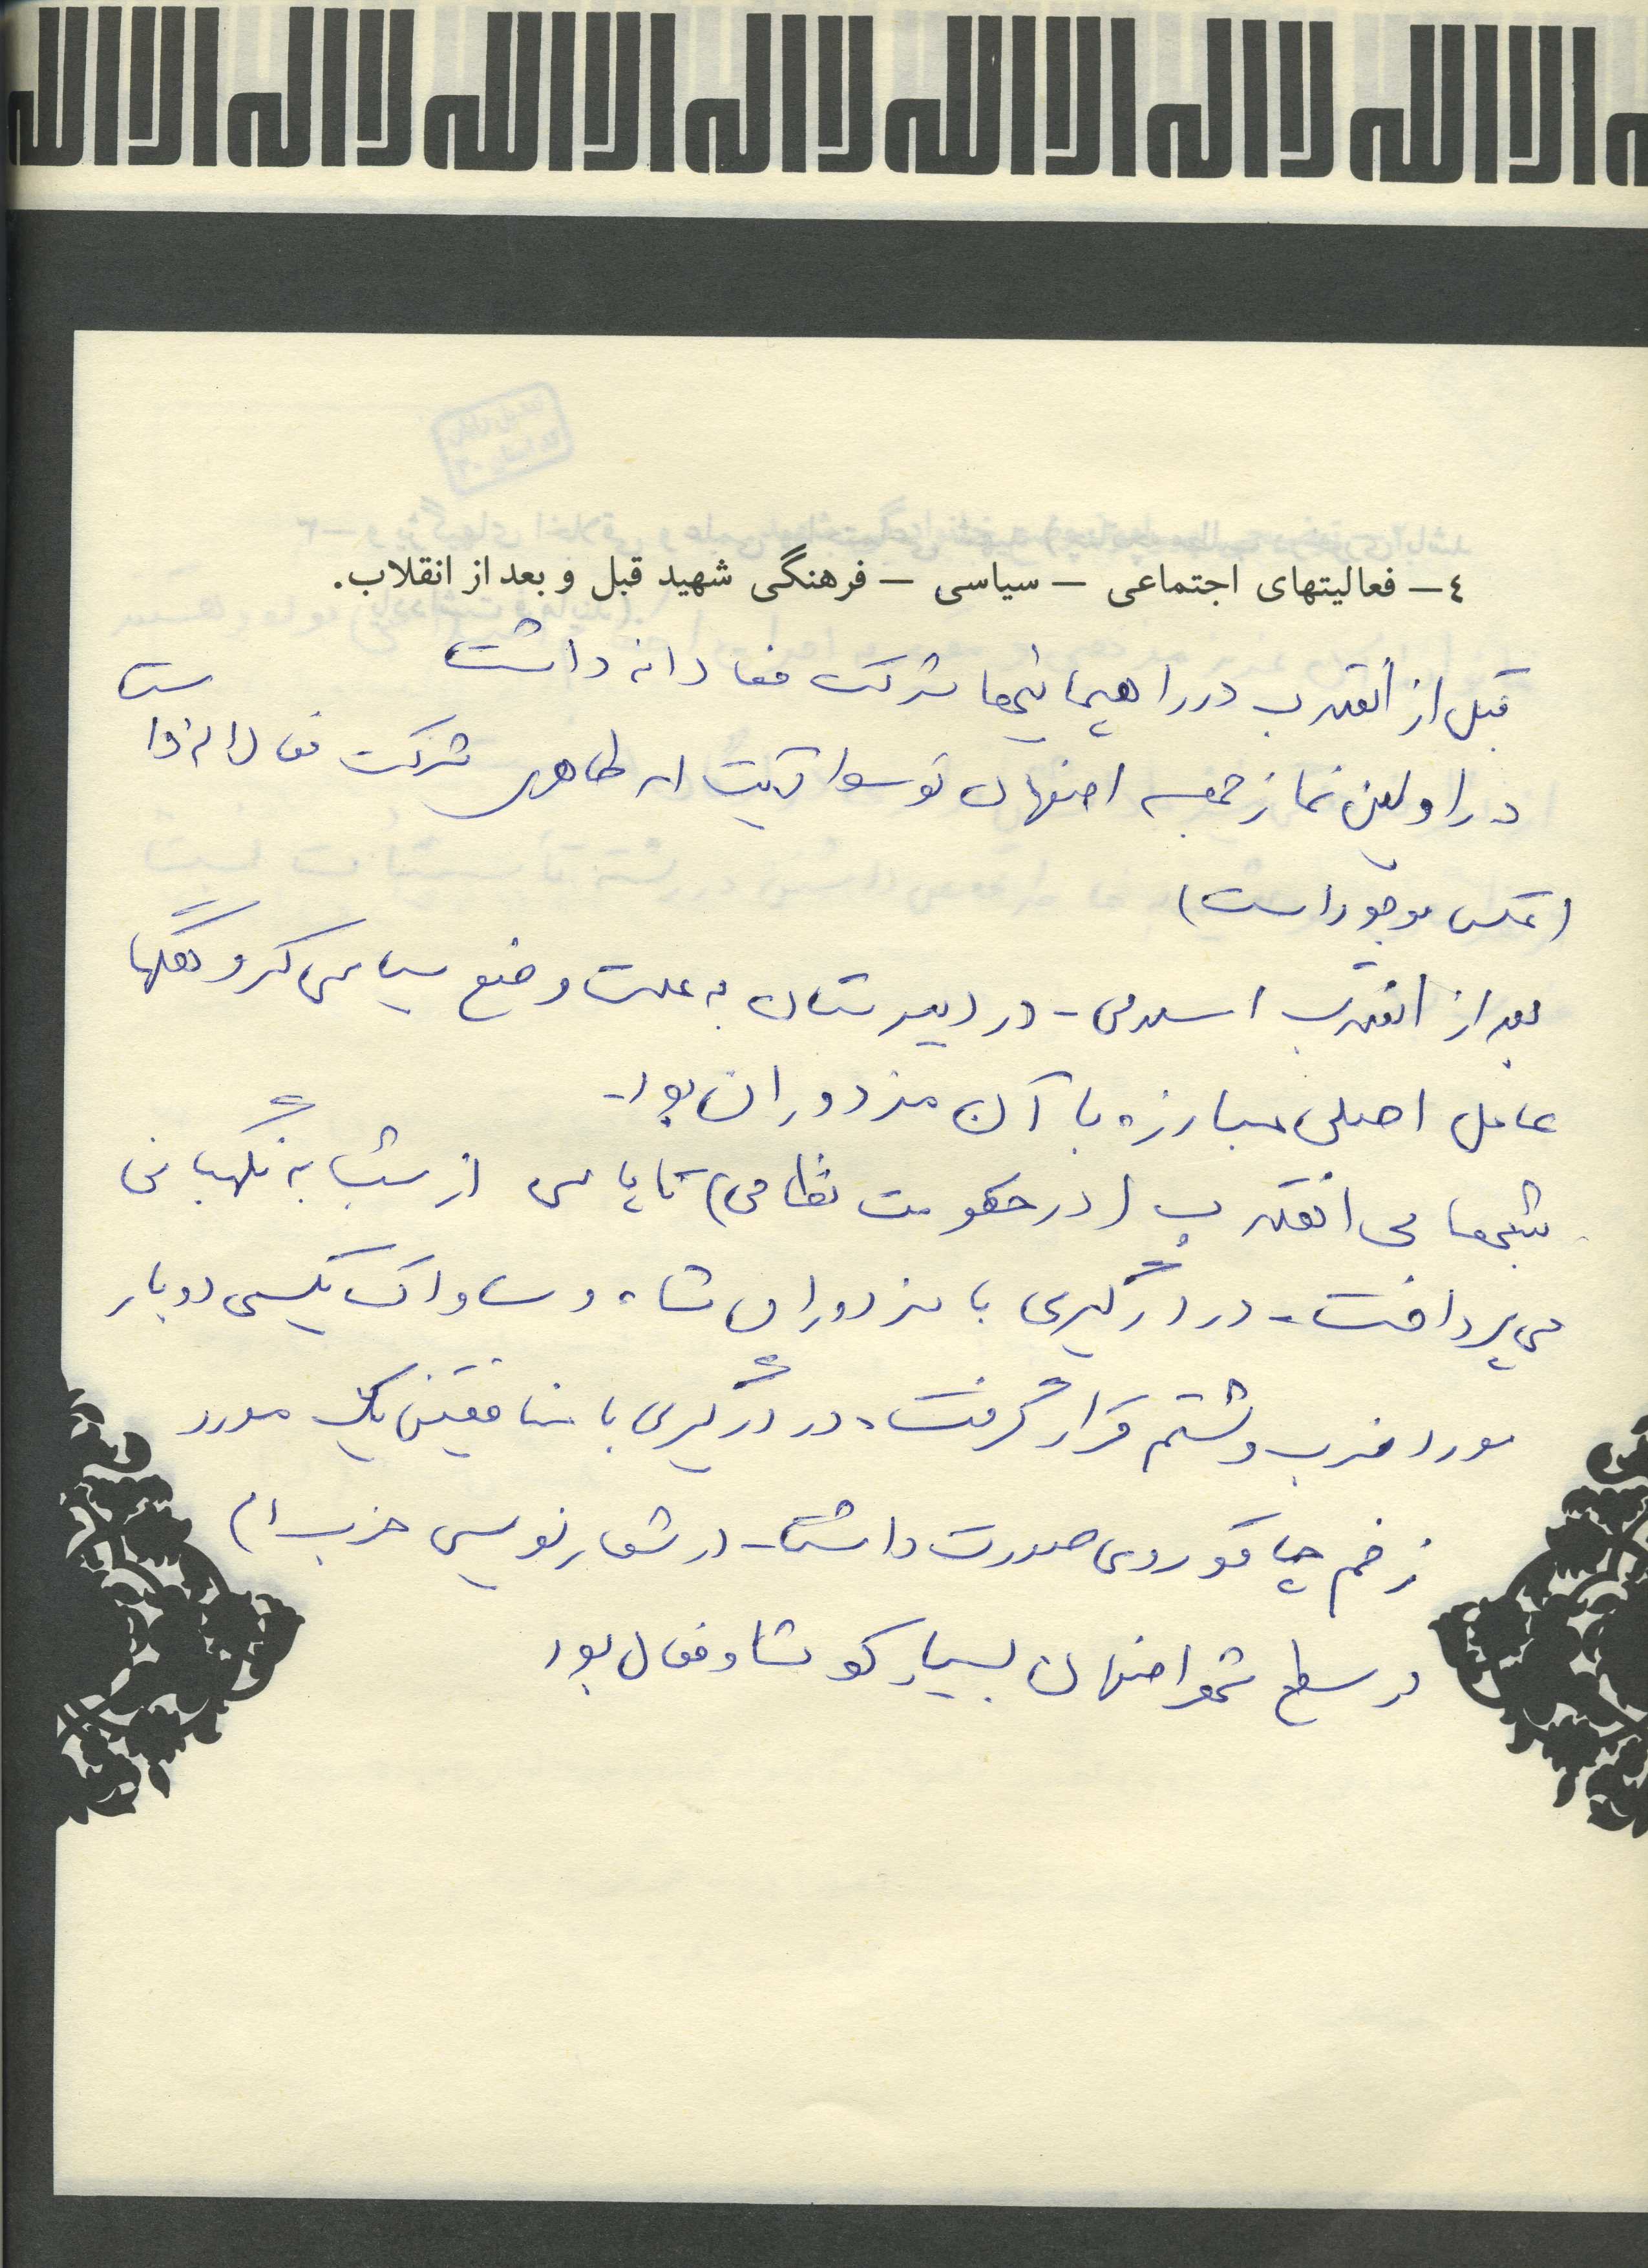 لا اله الا الله لا اله الا الله لا اله الا الله
٤ – فعالیتهای اجتماعی – سیاسی – فرهنگی شهید قبل و بعد از انقلاب.
قبل از انقلاب در راهپیمائیها شرکت فعالانه داشت
در اولین نماز جمعه اصفهان توسط آیت اله طاهری شرکت فعالانه داشت
(عکس موجود است)
بعد از انقلاب اسلامی - در دبیرستان به علت وضع سیاسی گروهکها
عامل اصلی مبارزه با آن مزدوران بود.
شبهای انقلاب (در حکومت نظامی) تا پاسی از شب به نگهبانی
می پرداخت. در درگیری با مزدوران شاه و ساواک یکی دو بار
مورد ضرب و شتم قرار گرفت. در درگیری با منافقین یک مورد
زخم چاقو روی صورت داشت - در شعار نویسی حزب ا...
در سطح شهر اصفهان بسیار کوشا و فعال بود